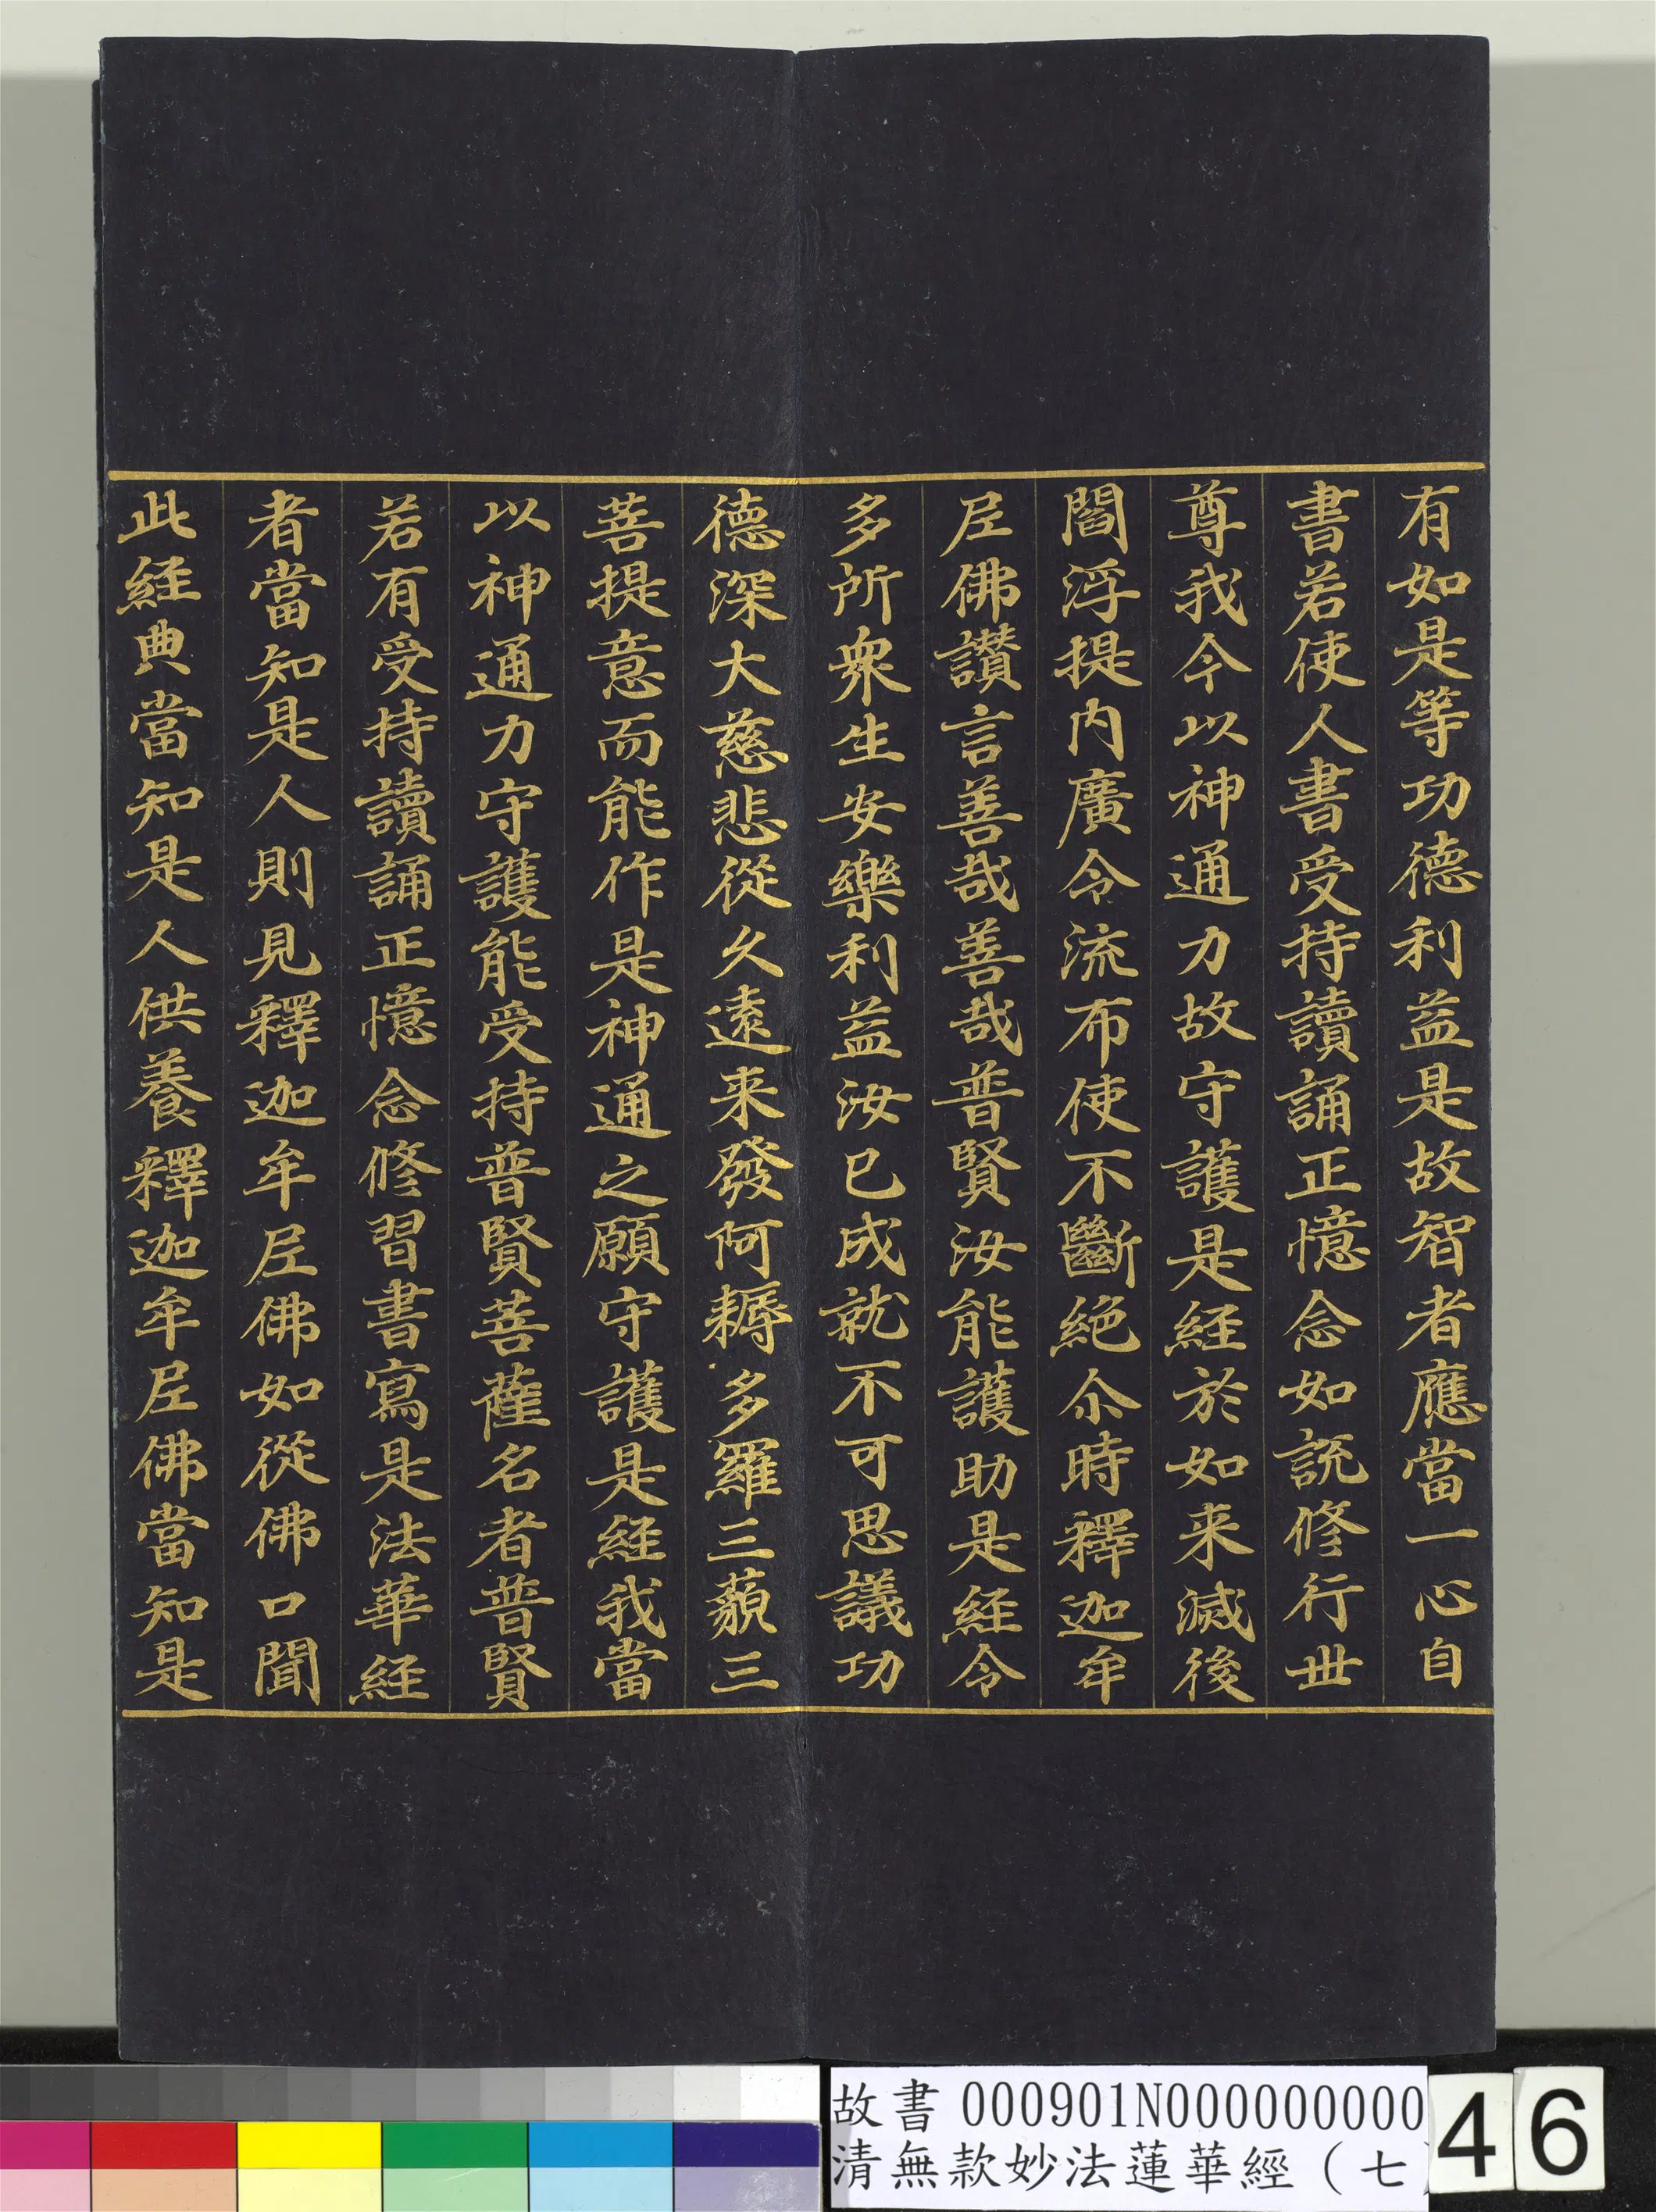 有如是等功德利益是故智者應當一心自
書若使人書受持讀誦正憶念如說修行世
尊我今以神通力故守護是経於如来滅後
閻浮提内廣令流布使不斷絶尒時釋迦牟
尼佛讃言善哉善哉普賢汝能護助是経令
多所衆生安樂利益汝已成就不可思議功
德深大慈悲從久遠来發阿耨多羅三藐三
菩提意而能作是神通之願守護是経我當
以神通力守護能受持普賢菩薩名者普賢
若有受持讀誦正憶念修習書寫是法華経
者當知是人則見釋迦牟尼佛如從佛口聞
此経典當知是人供養釋迦牟尼佛當知是
故書 000901N000000000
清無款妙法蓮華經（七
46